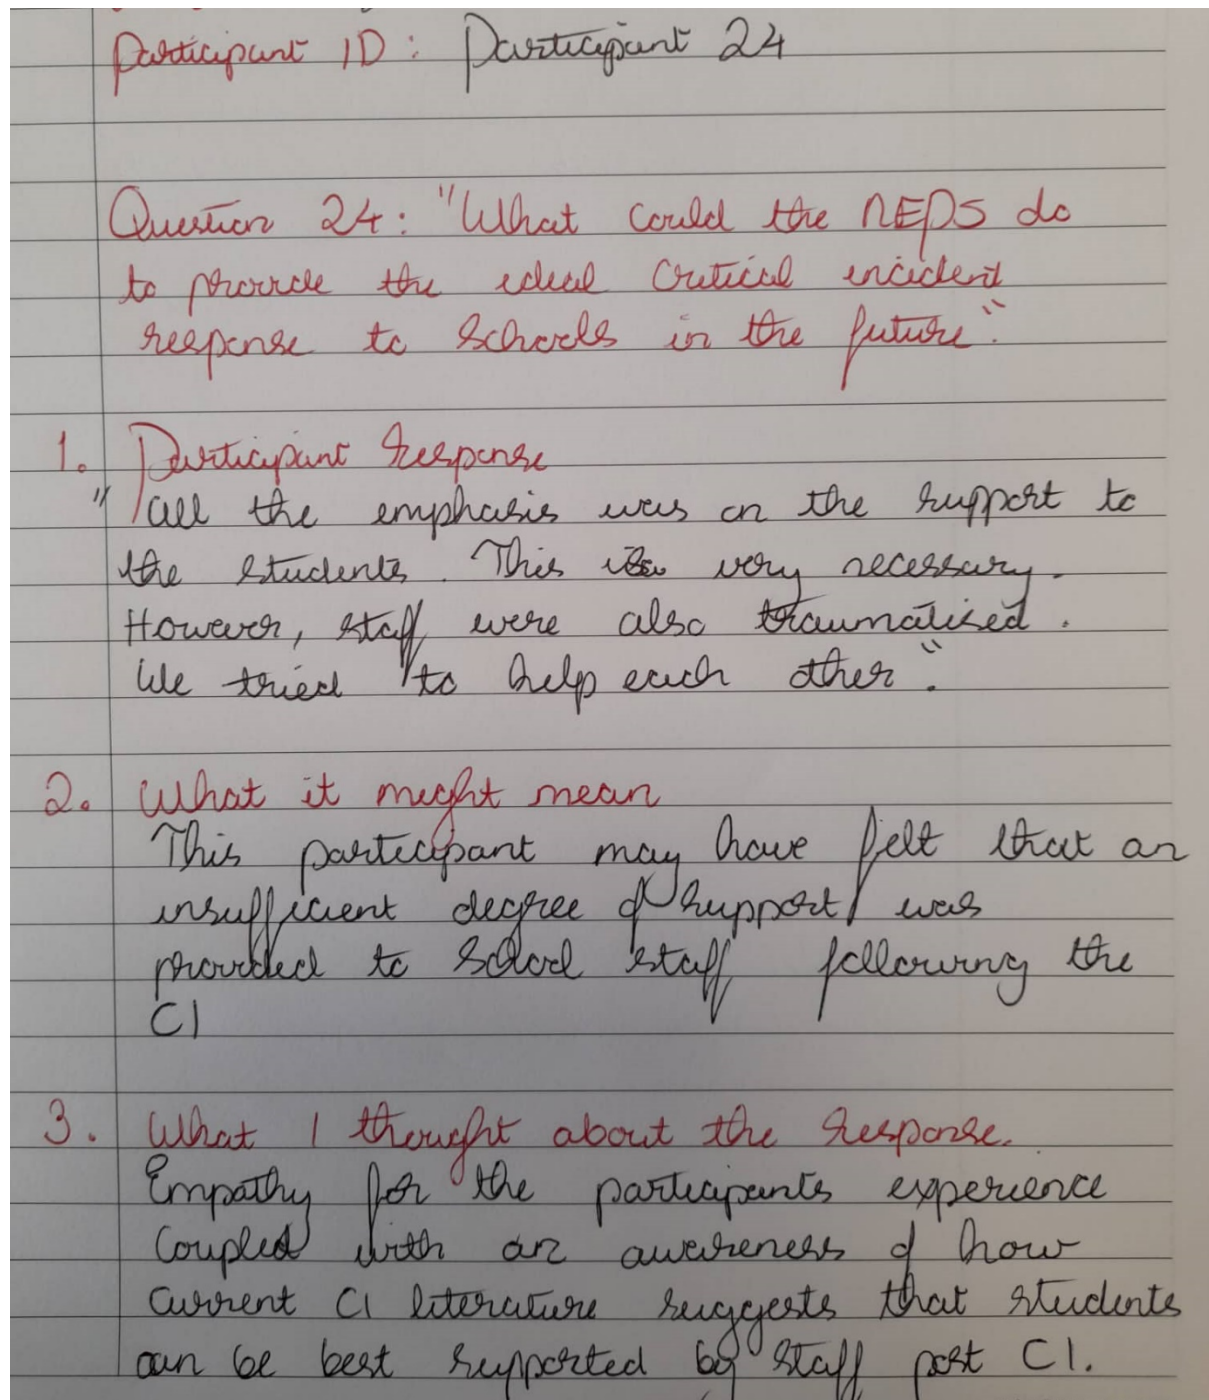 Participant ID: Participant 24
Question 24: "What could the NEPS do
to provide the ideal critical incident
response to schools in the future".
1. Participant Response
"All the emphasis was on the support to
the students. This is very necessary.
However, staff were also traumatised.
We tried to help each other".
2. What it might mean
This participant may have felt that an
insufficient degree of support was
provided to school staff following the
CI
3. What I thought about the response.
Empathy for the participants experience
coupled with an awareness of how
current CI literature suggests that students
can be best supported by staff post CI.